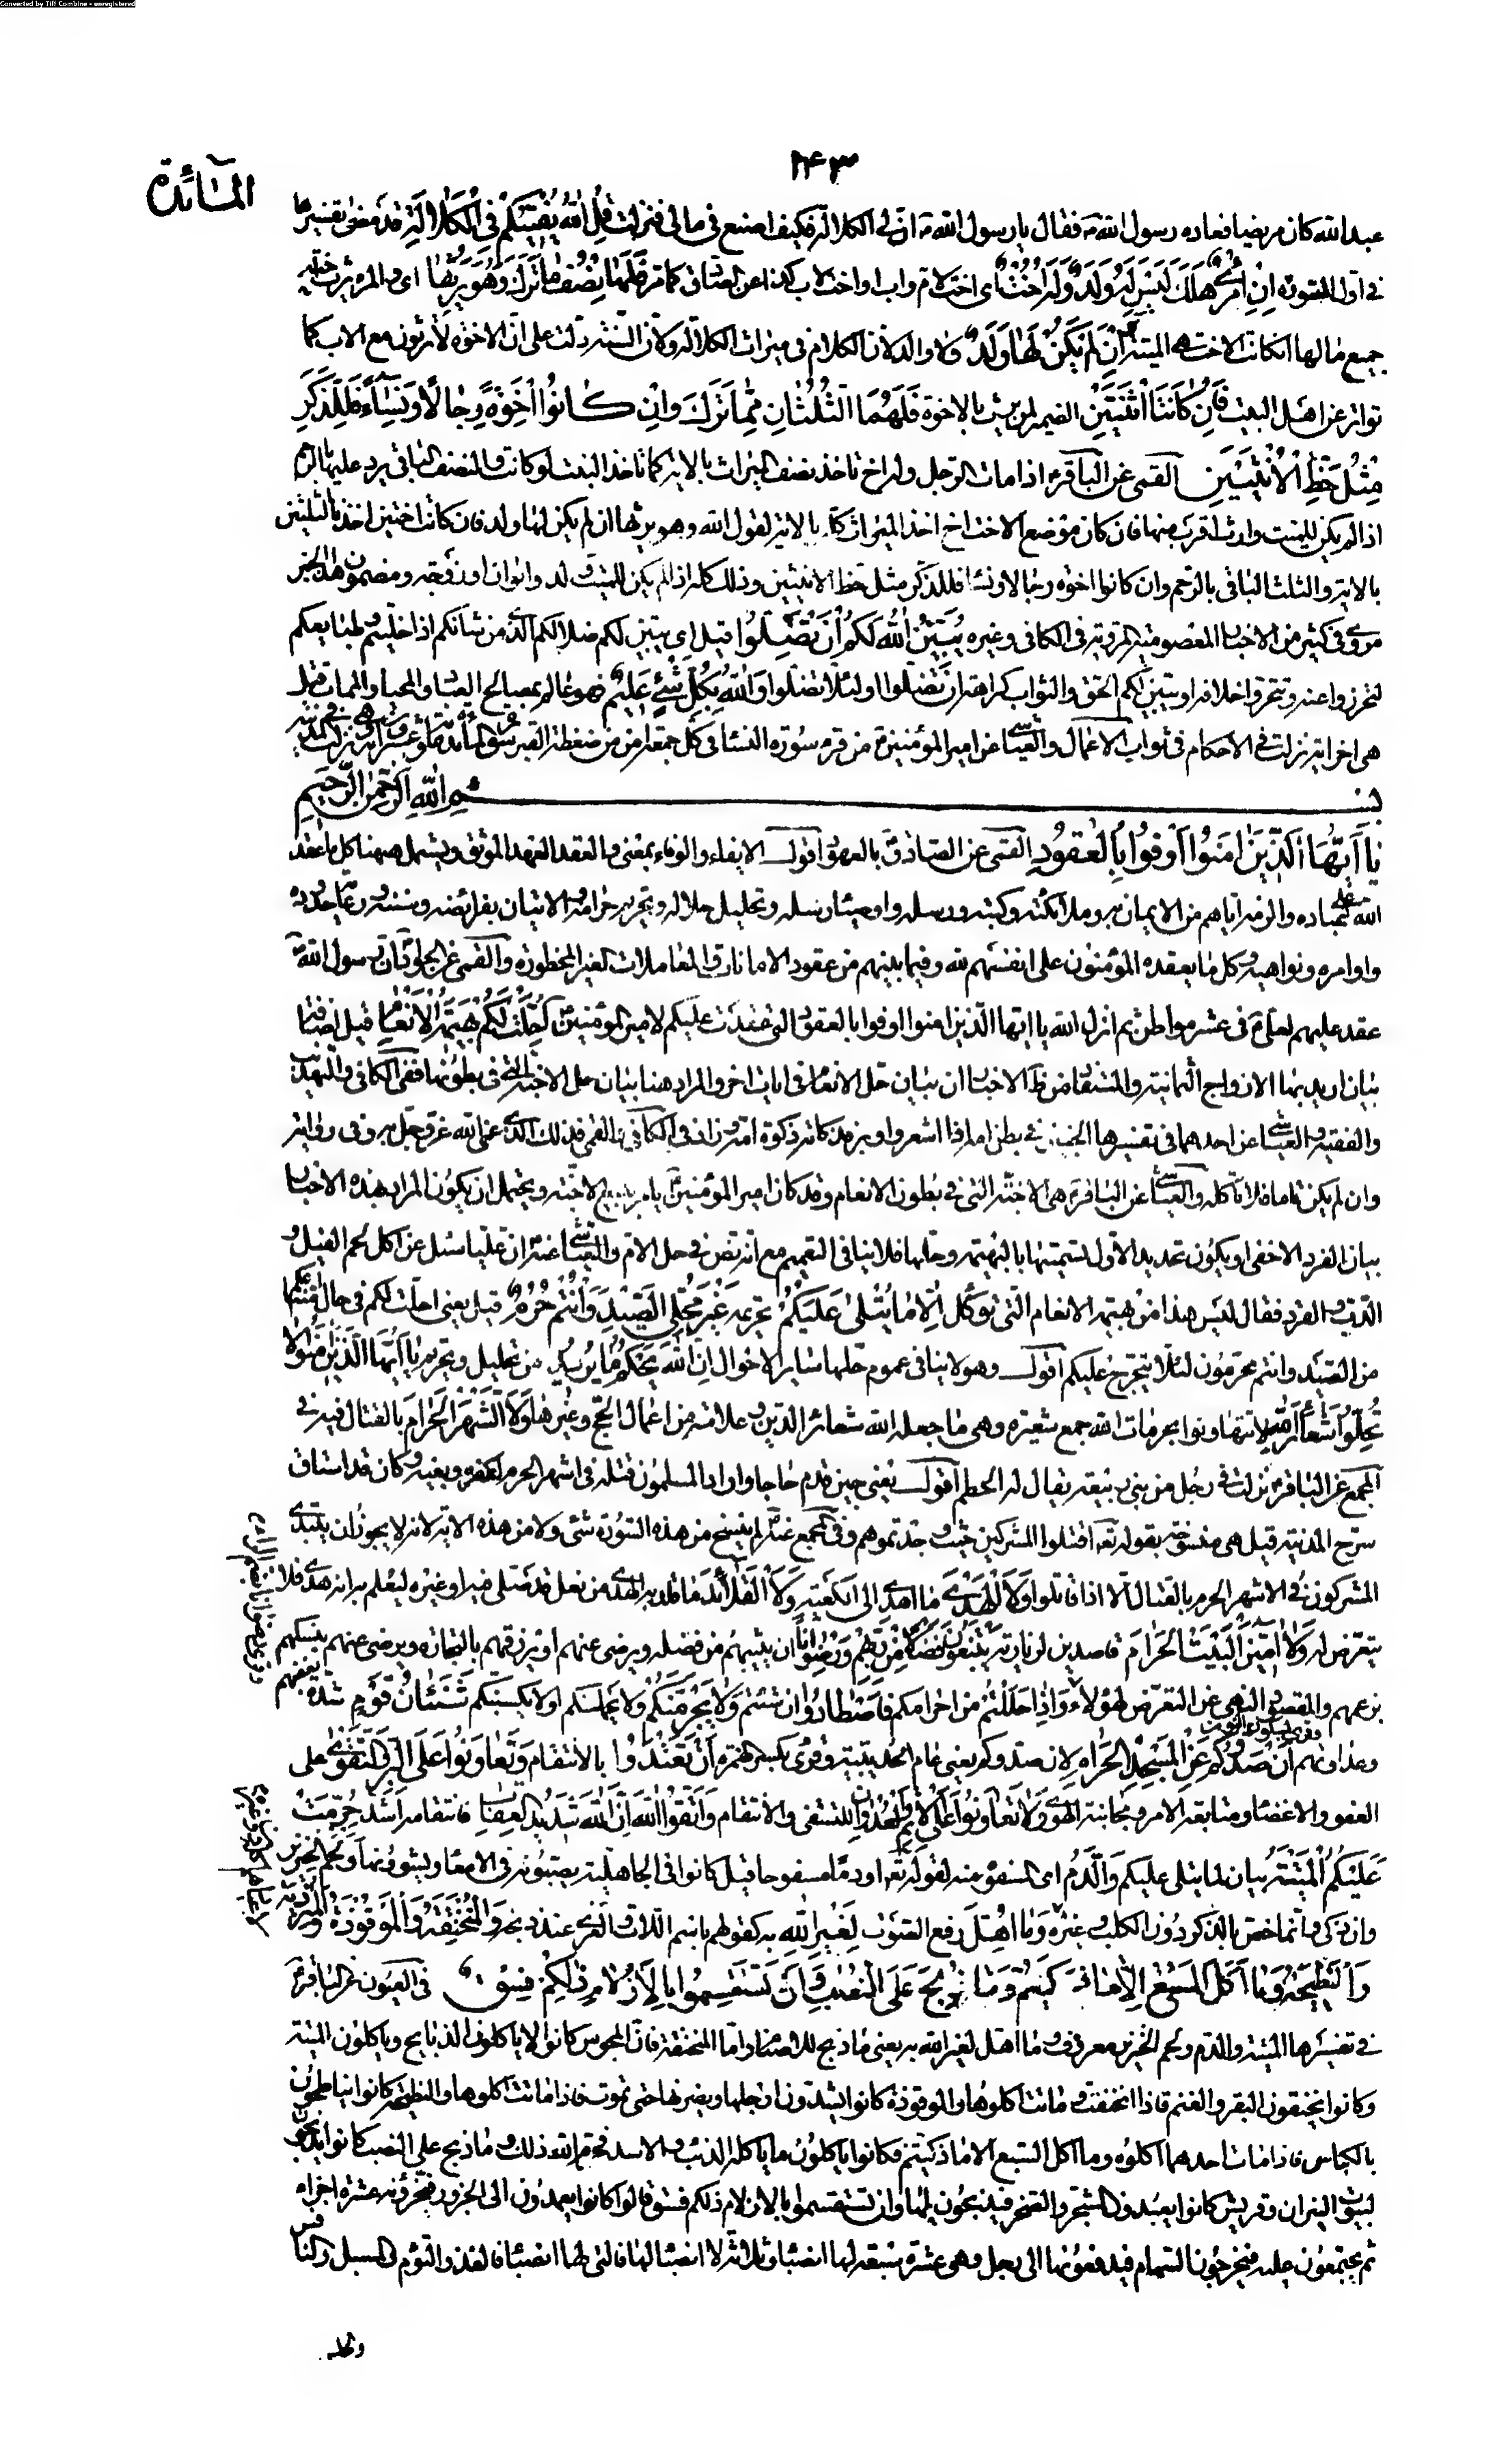 Converted by Tiff Combine - unregistered
۱۴۳
المائدة
عبدالله كان مريضا فعاده رسول الله ص فقال يا رسول الله ص ان لى كلالة فكيف اصنع فى مالى فنزلت قُلِ اللهُ يُفْتِيكُمْ فِى الْكَلَالَةِ قد مضى تفسيرها
فى اول السورة اِنِ امْرُؤٌ هَلَكَ لَيْسَ لَهُ وَلَدٌ وَلَهُ اُخْتٌ اى اخت لام واب او اخت لاب كذا عن الصادق كما مر فَلَهَا نِصْفُ مَا تَرَكَ وَهُوَ يَرِثُهَا اى والمرء يرث اخته
جميع مالها ان كانت الاخت هى الميتة اِنْ لَمْ يَكُنْ لَهَا وَلَدٌ ولا والد لان الكلام فى ميراث الكلالة ولان السنة دلت على ان الاخوة لا يرثون مع الاب كما
تواتر عن اهل البيت فَاِنْ كَانَتَا اثْنَتَيْنِ الضمير لمن يرث بالاخوة فَلَهُمَا الثُّلُثَانِ مِمَّا تَرَكَ وَاِنْ كَانُوا اِخْوَةً رِجَالًا وَنِسَاءً فَلِلذَّكَرِ
مِثْلُ حَظِّ الْاُنْثَيَيْنِ القمى عن الباقر ع اذا مات الرجل وله اخت تاخذ نصف الميراث بالاية كما تاخذ البنت لو كانت والنصف الباقى يرد عليها بالرحم
اذا لم يكن للميت وارث اقرب منها فان كان موضع الاخت اخ اخذ الميراث كله بالاية لقول الله وهو يرثها ان لم يكن لها ولد فان كانتا اختين اخذتا الثلثين
بالاية والثلث الباقى بالرحم وان كانوا اخوة رجالا ونساء فللذكر مثل حظ الانثيين وذلك كله اذا لم يكن للميت ولد وابوان او زوجة ومضمون هذا الخبر
مروى فى كثير من الاخبار المعصومية المروية فى الكافى وغيره يُبَيِّنُ اللهُ لَكُمْ اَنْ تَضِلُّوا قيل اى يبين لكم ضلالكم الذى من شانكم اذا خليتم وطبايعكم
لتحرزوا عنه وتتحروا خلافه او يبين لكم الحق والثواب كراهة ان تضلوا او لئلا تضلوا وَاللهُ بِكُلِّ شَيْءٍ عَلِيمٌ فهو عالم بمصالح العباد والمحيا والممات قيل
هى اخر اية نزلت فى الاحكام فى ثواب الاعمال والعياشى عن امير المؤمنين ع من قرء سورة النساء فى كل جمعة امن من ضغطة القبر سورة المائدة
بِسْمِ اللهِ الرَّحْمٰنِ الرَّحِيمِ
يَا اَيُّهَا الَّذِينَ اٰمَنُوا اَوْفُوا بِالْعُقُودِ القمى عن الصادق ع بالعهود اقول الايفاء والوفاء بمعنى والعقد العهد الموثق ويشمل ههنا كل ما عقد
الله على عباده والزمه اياهم من الايمان به وملائكته وكتبه ورسله واوصياء رسله وتحليل حلاله وتحريم حرامه والاتيان بفرائضه وسننه ورعاية حدوده
واوامره ونواهيه وكل ما يعقده المؤمنون على انفسهم لله وفيما بينهم من عقود الامانات والمعاملات الغير المحظورة والقمى عن الجواد ع ان رسول الله ص
عقد عليهم لعلى ع فى عشرة مواطن ثم انزل الله يا ايها الذين امنوا اوفوا بالعقود التى عقدت عليكم لامير المؤمنين ع اُحِلَّتْ لَكُمْ بَهِيمَةُ الْاَنْعَامِ قيل اضافة
بيان اريد بها الازواج الثمانية والمستفاد من ظاهر الاخبار ان بيان حل الانعام فى ايات اخر والمراد هنا بيان حل الاجنة التى فى بطونها ففى الكافى والتهذيب
والفقيه والعياشى عن احدهما فى تفسيرها الجنين فى بطن امه اذا اشعر واوبر فذكاته ذكوة امه وزاد فى الكافى والقمى فذلك الذى عنى الله عز وجل به وفى رواية
وان لم يكن تاما فلا تاكله والعياشى عن الباقر ع هى الاجنة التى فى بطون الانعام وقد كان امير المؤمنين ع يامر ببيع الاجنة ويحتمل ان يكون المراد بهذه الاخبار
بيان الفرد الاخفى او يكون تحديد الاول تسميتها بالبهيمة وحلها فلا ينافى التعميم مع انه نص فى حل الام والعياشى عنه ع ان عليا سئل عن اكل لحم الفيل و
الدب والقرد فقال ليس هذا من بهيمة الانعام التى تؤكل اِلَّا مَا يُتْلٰى عَلَيْكُمْ تحريمه غَيْرَ مُحِلِّى الصَّيْدِ وَاَنْتُمْ حُرُمٌ قيل يعنى احلت لكم فى حال امتناعكم
من الصيد وانتم محرمون لئلا يتحرج عليكم اقول وهو لا ينافى عموم حلها سائر الاحوال اِنَّ اللهَ يَحْكُمُ مَا يُرِيدُ من تحليل وتحريم يَا اَيُّهَا الَّذِينَ اٰمَنُوا لَا
تُحِلُّوا شَعَائِرَ اللهِ لا تتهاونوا بحرمات الله جمع شعيرة وهى ما جعله الله شعائر الدين وعلامته من اعمال الحج وغيرها وَلَا الشَّهْرَ الْحَرَامَ بالقتال فيه فى
المجمع عن الباقر ع نزلت فى رجل من بنى ربيعة يقال له الحطم اقول يعنى حين قدم حاجا واراد المسلمون قتله فى اشهر الحرم لكفره وبغيه وكان قد استاق
سرح المدينة قيل هى منسوخة بقوله تعالى اقتلوا المشركين حيث وجدتموهم وفى المجمع عنه ع لم ينسخ من هذه السورة شئ ولا من هذه الاية لانه لا يجوز ان يبتدى
المشركون فى الاشهر الحرم بالقتال الا اذا قاتلوا وَلَا الْهَدْىَ ما اهدى الى الكعبة وَلَا الْقَلَائِدَ ما قلد به الهدى من نعل قد صلى فيه او غيره ليعلم به انه هدى فلا
يتعرض له وَلَا اٰمِّينَ الْبَيْتَ الْحَرَامَ قاصدين لزيارته يَبْتَغُونَ فَضْلًا مِنْ رَبِّهِمْ وَرِضْوَانًا ان يثيبهم من فضله ويرضى عنهم او يرزقهم بالتجارة ويرضى عنهم بنسكهم
بزعمهم والمقصود النهى عن التعرض لهؤلاء وَاِذَا حَلَلْتُمْ من احرامكم فَاصْطَادُوا ان شئتم وَلَا يَجْرِمَنَّكُمْ ولا يحملنكم او لا يكسبنكم شَنَاٰنُ قَوْمٍ شدة بغضهم
وعداوتهم اَنْ صَدُّوكُمْ عَنِ الْمَسْجِدِ الْحَرَامِ لان صدوكم يعنى عام الحديبية وقرئ بكسر الهمزة اَنْ تَعْتَدُوا بالانتقام وَتَعَاوَنُوا عَلَى الْبِرِّ وَالتَّقْوٰى على
العفو والاغضاء ومتابعة الامر ومجانبة الهوى وَلَا تَعَاوَنُوا عَلَى الْاِثْمِ وَالْعُدْوَانِ للتشفى والانتقام وَاتَّقُوا اللهَ اِنَّ اللهَ شَدِيدُ الْعِقَابِ فانتقامه اشد حُرِّمَتْ
عَلَيْكُمُ الْمَيْتَةُ بيان لما يتلى عليكم وَالدَّمُ اى المسفوح منه لقوله تعالى او دما مسفوحا قيل كانوا فى الجاهلية يصبونه فى الامعاء ويشوونها وَلَحْمُ الْخِنْزِيرِ
وان ذكى وانما خص بالذكر دون الكلب وغيره وَمَا اُهِلَّ رفع الصوت لِغَيْرِ اللهِ بِهِ كقولهم باسم اللات والعزى عند ذبحه وَالْمُنْخَنِقَةُ وَالْمَوْقُوذَةُ وَالْمُتَرَدِّيَةُ
وَالنَّطِيحَةُ وَمَا اَكَلَ السَّبُعُ اِلَّا مَا ذَكَّيْتُمْ وَمَا ذُبِحَ عَلَى النُّصُبِ وَاَنْ تَسْتَقْسِمُوا بِالْاَزْلَامِ ذٰلِكُمْ فِسْقٌ فى العيون عن الباقر ع
فى تفسيرها الميتة والدم ولحم الخنزير معروف وما اهل لغير الله به يعنى ما ذبح للاصنام واما المنخنقة فان المجوس كانوا لا ياكلون الذبايح وياكلون الميتة
وكانوا يخنقون البقر والغنم فاذا انخنقت وماتت اكلوها والموقوذة كانوا يشدون ارجلها ويضربونها حتى تموت فاذا ماتت اكلوها والنطيحة كانوا يناطحون
بالكباش فاذا مات احدهما اكلوه وما اكل السبع الا ما ذكيتم فكانوا ياكلون ما ياكله الذئب والاسد فحرم الله ذلك وما ذبح على النصب كانوا يذبحون
لبيوت النيران وقريش كانوا يعبدون الشجر والصخر فيذبحون لها وان تستقسموا بالازلام ذلكم فسق قال كانوا يعمدون الى الجزور فيجزؤنه عشرة اجزاء
ثم يجتمعون عليه فيخرجون السهام فيدفعونها الى رجل وهى عشرة سبعة لها انصباء وثلاثة لا انصباء لها فالتى لها انصباء فالفذ والتوأم والمسبل والنافس